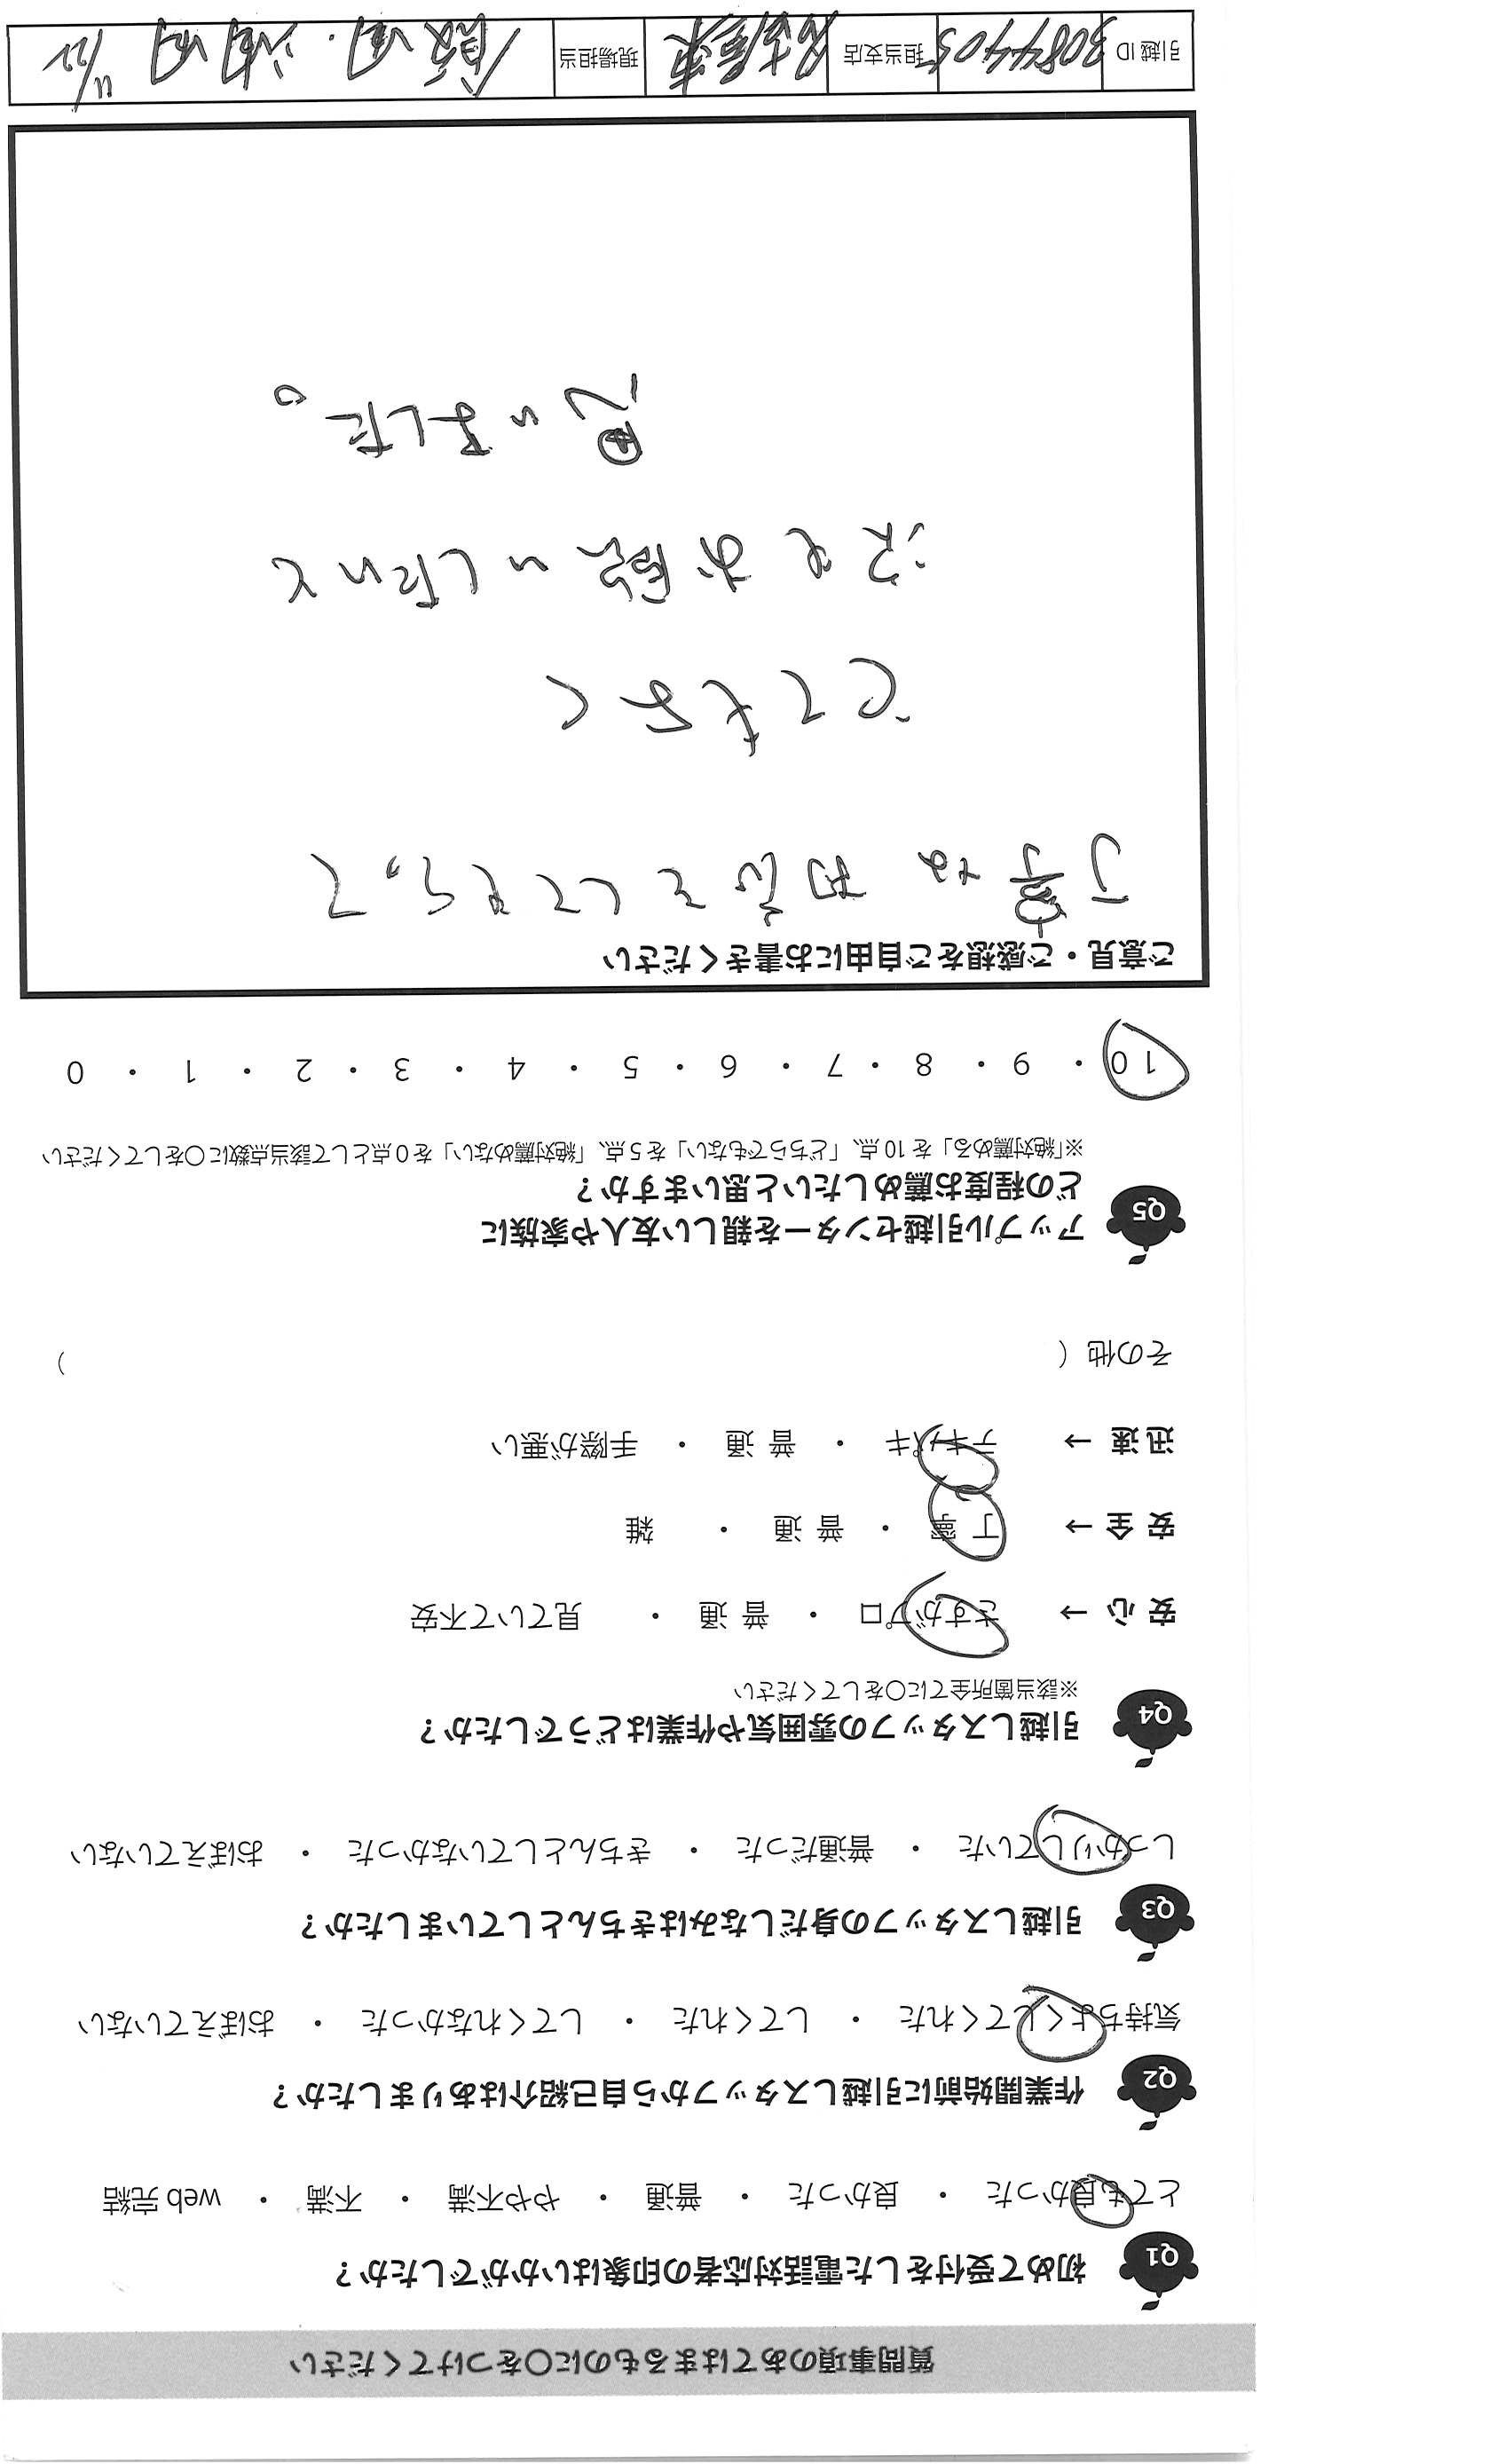 質問事項のあてはまるものに〇をつけてください
Q1 初めて受付をした電話対応者の印象はいかがでしたか？
とても良かった ・ 良かった ・ 普通 ・ やや不満 ・ 不満 ・ web 完結
Q2 作業開始前に引越しスタッフから自己紹介はありましたか？
気持ちよくしてくれた ・ してくれた ・ してくれなかった ・ おぼえていない
Q3 引越しスタッフの身だしなみはきちんとしていましたか？
しっかりしていた ・ 普通だった ・ きちんとしていなかった ・ おぼえていない
Q4 引越しスタッフの雰囲気や作業はどうでしたか？
※該当箇所全てに〇をしてください
安 心 → さすがプロ ・ 普 通 ・ 見ていて不安
安 全 → 丁 寧 ・ 普 通 ・ 雑
迅 速 → テキパキ ・ 普 通 ・ 手際が悪い
その他（ ）
Q5 アップル引越センターを親しい友人や家族に
どの程度お薦めしたいと思いますか？
※「絶対薦める」を 10 点、「どちらでもない」を 5 点、「絶対薦めない」を 0 点として該当点数に〇をしてください
10 ・ 9 ・ 8 ・ 7 ・ 6 ・ 5 ・ 4 ・ 3 ・ 2 ・ 1 ・ 0
ご意見・ご感想をご自由にお書きください
丁寧な対応をしてもらって
とてもよく
次もお願いしたいと
思いました。
引越 ID 3084405 担当支店 名古屋東 現場担当 11/22